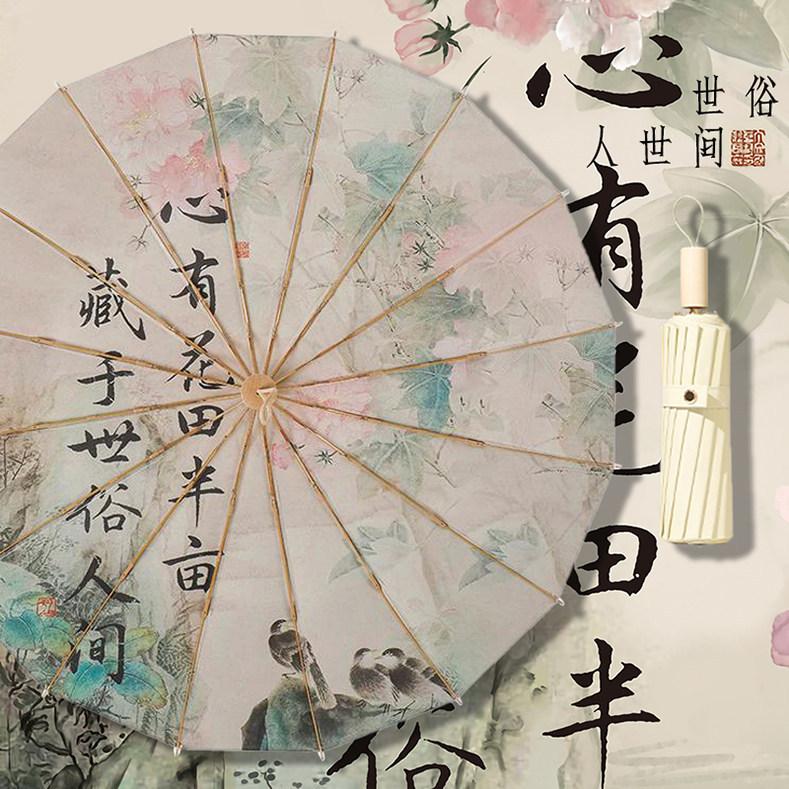 心有花田半亩
藏于世俗人间
世俗
人世间
心有花田半
俗